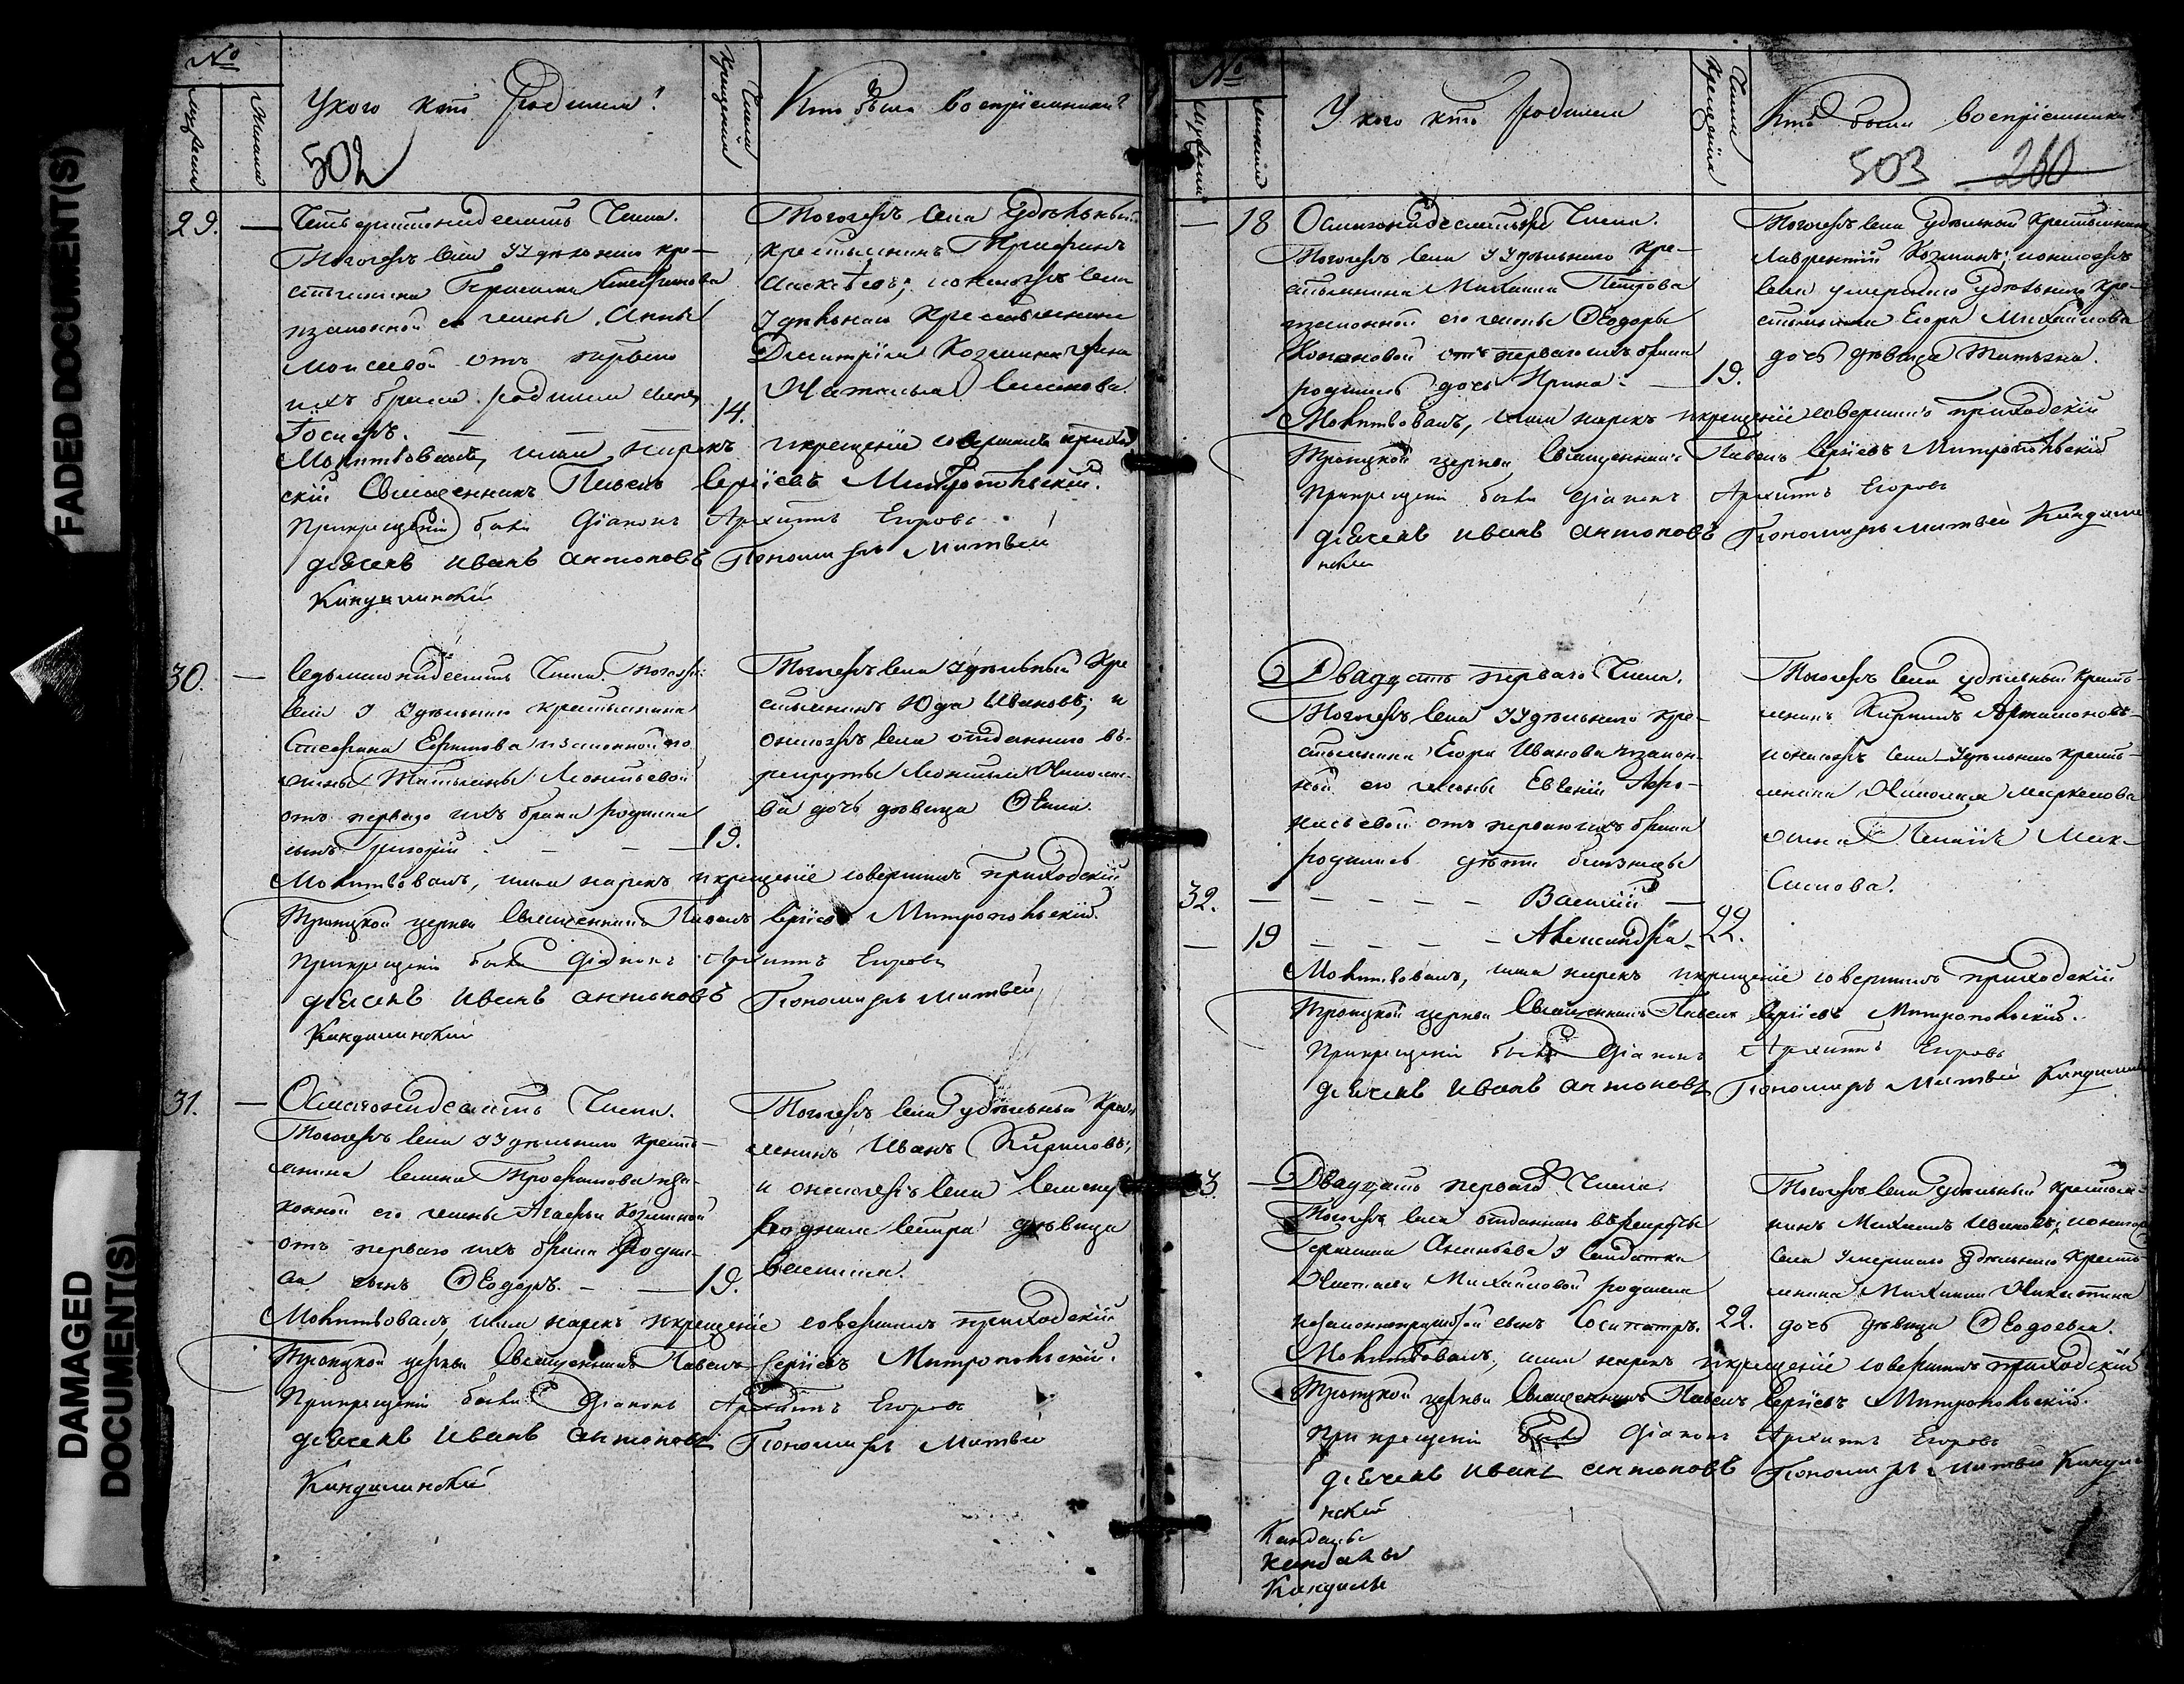 FADED DOCUMENT(S)
DAMAGED
DOCUMENT(S)
№
Мужеска
Женска
У кого кто родился?
Число
Крещенія
Кто были воспріемники?
502
29. —
Четвертагонадесять Числа.
Тогожъ села Удѣльнаго кре-
стьянина Герасима Стефанова
изаконной его жены Анны
Моисеевой отъ перваго
ихъ брака родился сынъ
14.
Тогожъ села Удѣльный
крестьянинъ Трифонъ
Алексѣевъ; ионагожъ села
Удѣльнаго Крестьянина
Димитрія Козмина жена
Наталья Семенова.
Молитвовалъ, имя нарекъ икрещеніе совершилъ приход
скій Священникъ Павелъ Сергіевъ Митропольскій.
Прикрещеніи были Діаконъ Архиппъ Егоровъ
дьячекъ иванъ антоновъ Пономарь Матвей
Кандалинскій
30. —
Седьмагонадесять Числа. Тогожъ
села Удѣльнаго крестьянина
Стефана Ефимова изаконной его
жены Татьяны Леонтьевой
отъ перваго ихъ брака родился
сынъ Григорій — — — 19.
Тогожъ села Удѣльный Кре
стьянинъ Юда Ивановъ; и
оногожъ села отданнаго въ
рекруты Леонтья Никола
ва дочь дѣвица Ѳекла.
Молитвовалъ, имя нарекъ икрещеніе совершилъ приходскій
Троицкой церкви Священникъ Павелъ Сергіевъ Митропольскій.
Прикрещеніи были Діаконъ Архиппъ Егоровъ
дьячекъ иванъ антоновъ Пономарь Матвей
Кандалинскій
31. —
Осмагонадесять Числа.
Тогожъ села Удѣльнаго кресть-
янина Семена Трофимова иза-
конной его жены Агафьи Козминой
отъ перваго ихъ брака Родил-
ся сынъ Ѳеодоръ. — — 19.
Тогожъ села удѣльный Крес
янинъ Иванъ Кириловъ;
и оногожъ села
родная Сестра дѣвица
Василиса.
Молитвовалъ, имя нарекъ икрещеніе совершилъ приходскій
Троицкой церкви Священникъ Павелъ Сергіевъ Митропольскій.
Прикрещеніи были Діаконъ Архиппъ Егоровъ
дьячекъ иванъ антоновъ Пономарь Матвей
Кандалинскій
№
Мужеска
Женска
У кого кто родился
Число
Крещенія
Кто были воспріемники
503 260
— 18
Осмагонадесять Числа.
Тогожъ села Удѣльнаго Кре-
стьянина Михаила Петрова
изаконной его жены Ѳеодоры
Конановой отъ перваго ихъ брака
родилась дочь Ирина. — 19.
Тогожъ села Удѣльной Крестьянинъ
Лаврентій Козминъ; ионагожъ
села умершаго удѣльнаго кре-
стьянина Егора Михайлова
дочь дѣвица Татьяна.
Молитвовалъ, имя нарекъ икрещеніе совершилъ приходскій
Троицкой церкви Священникъ Павелъ Сергіевъ Митропольскій
Прикрещеніи были Діаконъ Архиппъ Егоровъ
дьячекъ иванъ антоновъ Пономарь Матвей Кандали
нскій
Двадцать перваго Числа.
Тогожъ села Удѣльнаго кре-
стьянина Егора Иванова изакон-
ной его жены Евгеніи Аѳа-
насьевой отъ перваго ихъ брака
родились дѣти близнецы
32. — — — — — Василій —
— 19 — — — — Александра — 22.
Тогожъ села удѣльный кресть-
янинъ Кирилъ Артамоновъ
ионагожъ села Удѣльнаго кресть-
янина Николая Маркелова
жена Мак-
симова.
Молитвовалъ, имя нарекъ икрещеніе совершилъ приходскій
Троицкой церкви Священникъ Павелъ Сергіевъ Митропольскій.
Прикрещеніи были Діаконъ Архиппъ Егоровъ
дьячекъ иванъ антоновъ Пономарь Матвей Кандали
33. —
Двадцать перваго Числа.
Тогожъ села отданнаго въ рекруты
Герасима Ананьева Солдатка
Наталья Михайловой родился
незаконнорожденный сынъ Сосипатръ. 22.
Тогожъ села Удѣльный крестья-
нинъ Михаилъ Ивановъ; ионагож
села Умершаго Удѣльнаго кресть-
янина Михаила Никитина
дочь дѣвица Ѳеодосья.
Молитвовалъ, имя нарекъ икрещеніе совершилъ приходскій
Троицкой церкви Священникъ Павелъ Сергіевъ Митропольскій.
При крещеніи были Діаконъ Архиппъ Егоровъ
дьячекъ иванъ антоновъ Пономарь Матвей Кандали
нскій
Кандалы
Кандалы
Кандалы